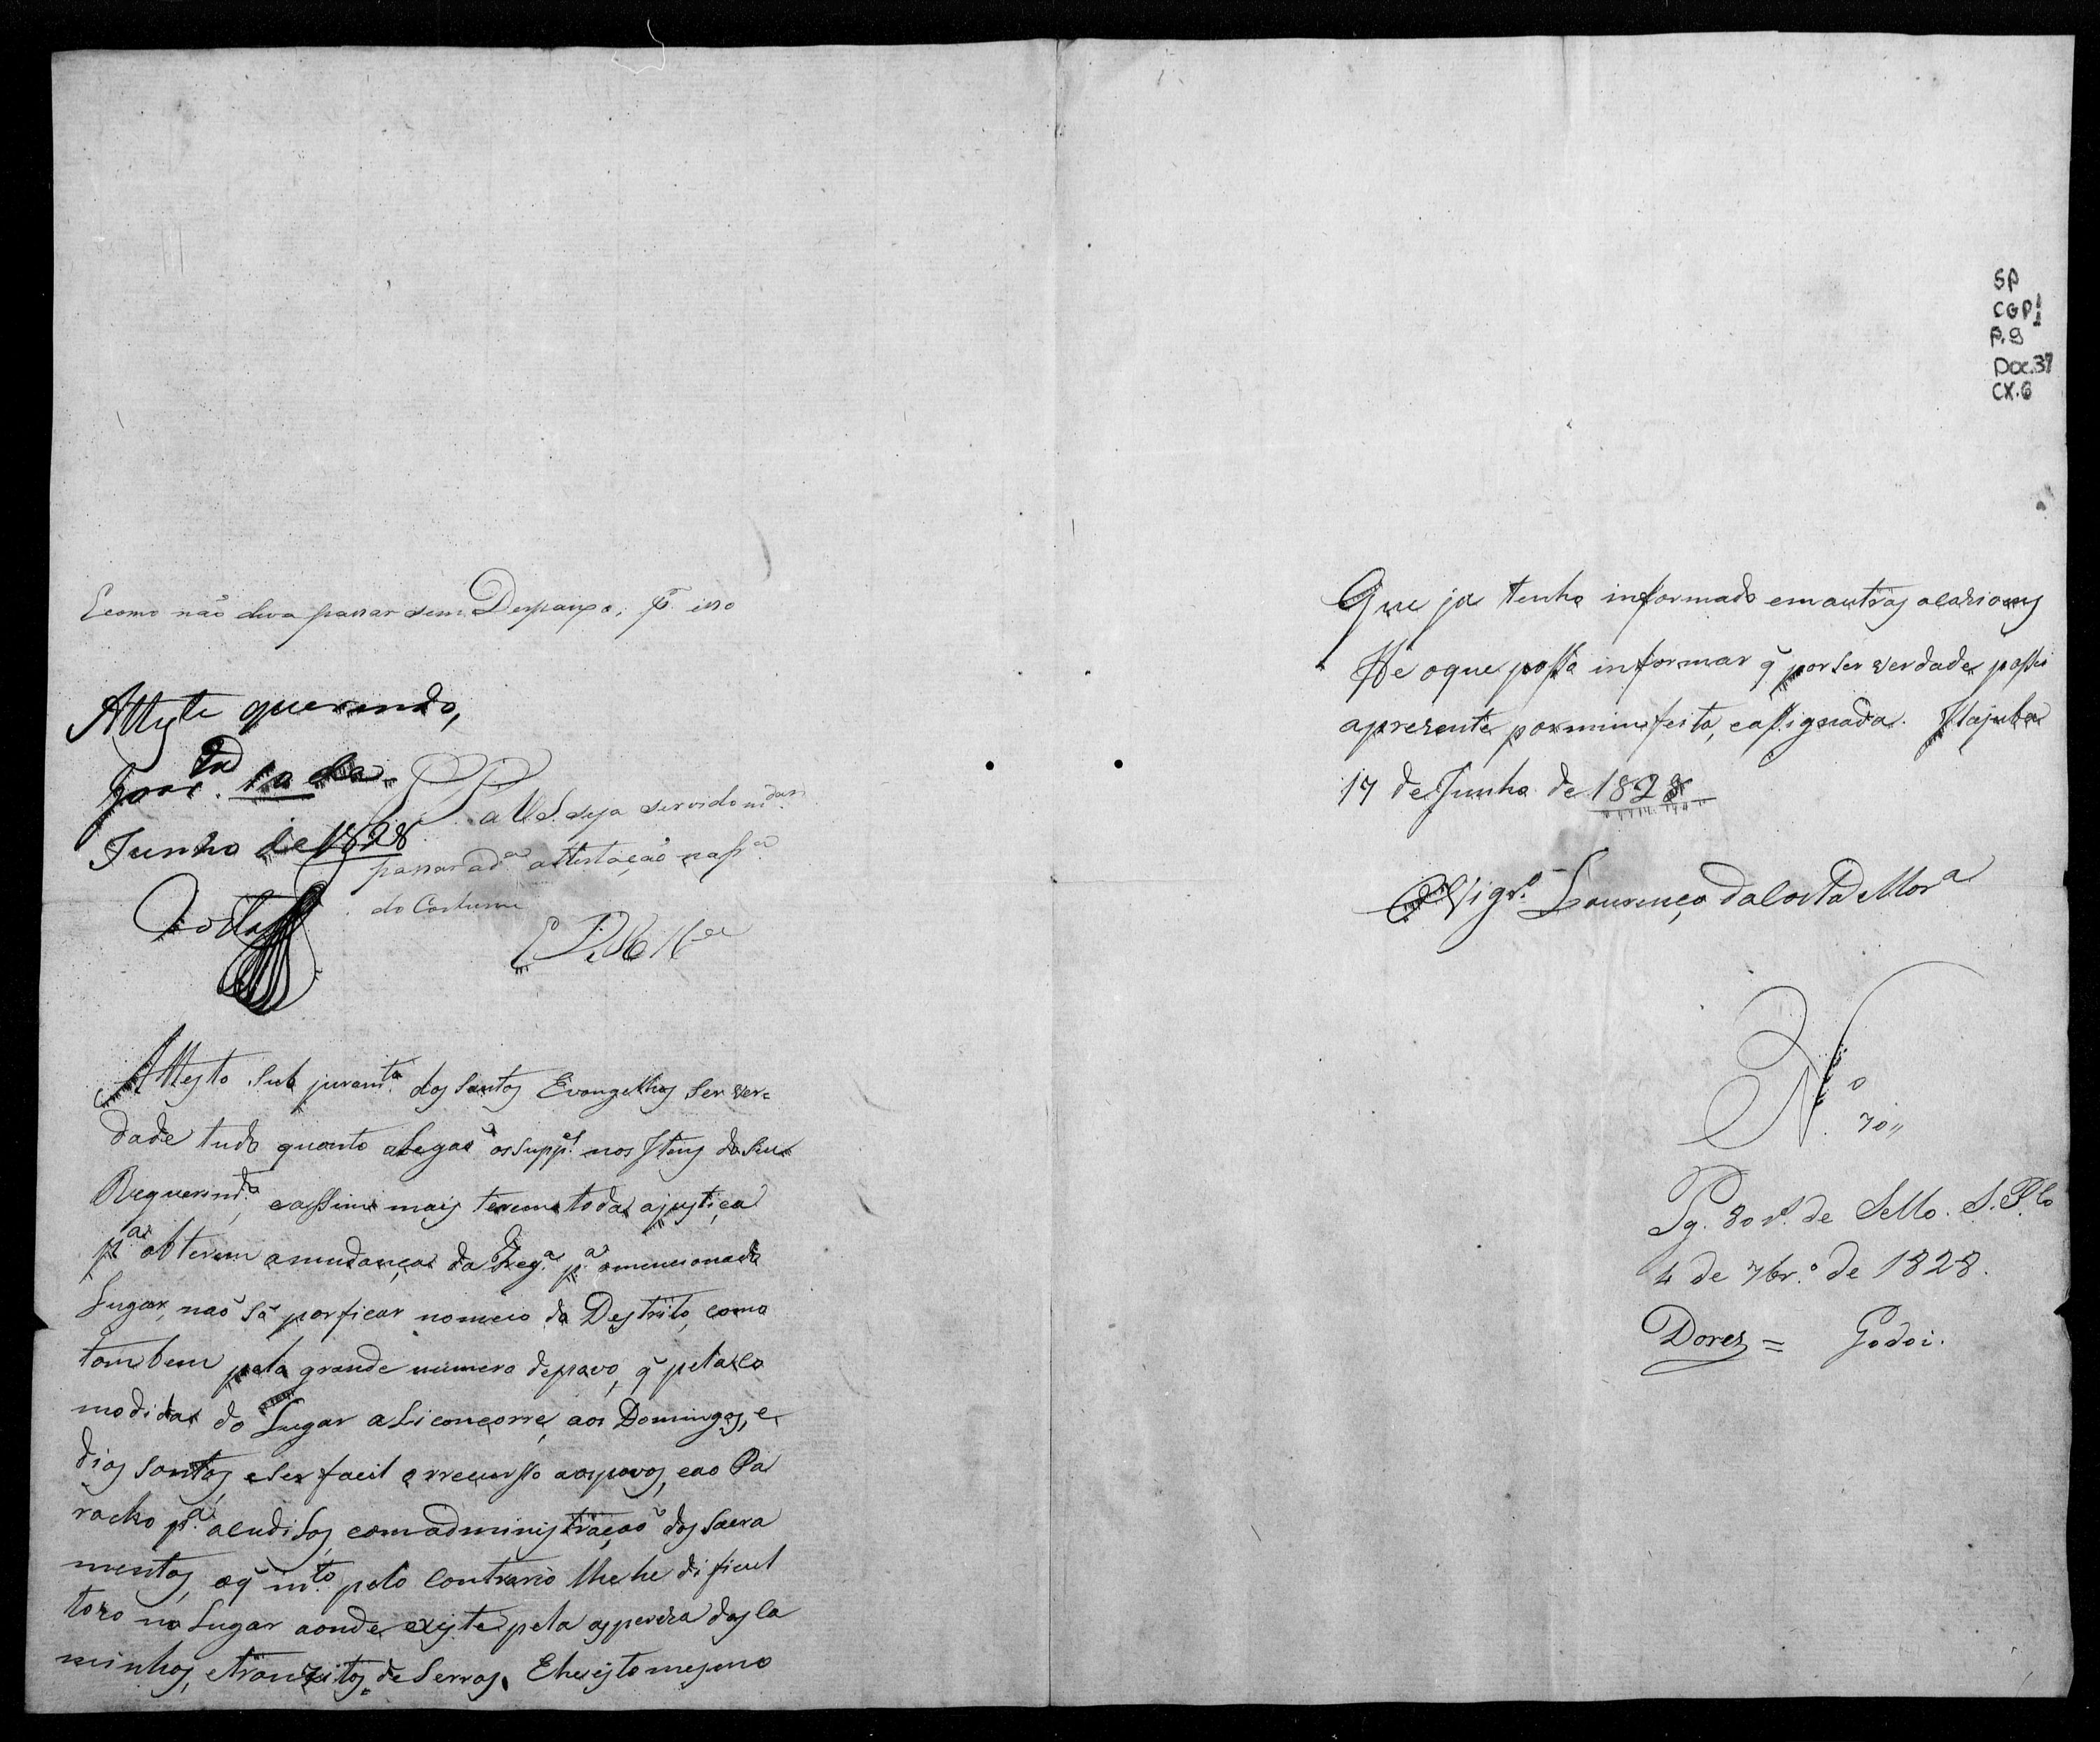 E como não deva passar sem Despaxo; p.r isso
Atteste querendo,
Junho de 1828
P. a V. S. seja servido m.dar
passar ad.a attestação na fr.a
do Costume
E R M.ce
Attesto sub juram.to dos Santos Evangelhos ser ver=
dade tudo quanto alegaõ os supp.es nos Itens do seu
Requerim.to, e assim mais terem toda a justiça
p.a obterem a mudança da Freg.a p.a o mencionado
Lugar, naõ só por ficar no meio do Destrito, como
tambem pelo grande numero de povo, q̃ pela co
modidad do Lugar ali concorre, aos Domingos, e
dias santos, e ser facil o recurso aos povos, e ao Pa
racho p.a acudilos, com administraçaõ dos Sacra
mentos, o q̃ m.to pelo contrario lhe he dificul
tozo no Lugar aonde existe pela aspereza dos Ca
minhos, e tranzitos de Serras. E he isto mesmo
Que ja tenho informado em outras ocazioens
He o que posso informar q̃ por ser verdade passo
a prezente por mim feita, e assignada. Itajuba
17 de Junho de 1828
O Vigr.o Lourenço da Costa Mor.a
N.o 70
Pg. 80 r.s de Sello. S. P.lo
4 de 7br.o de 1828.
Dores = Godoi.
SP
CGP1
P.9
Doc.37
CX.6